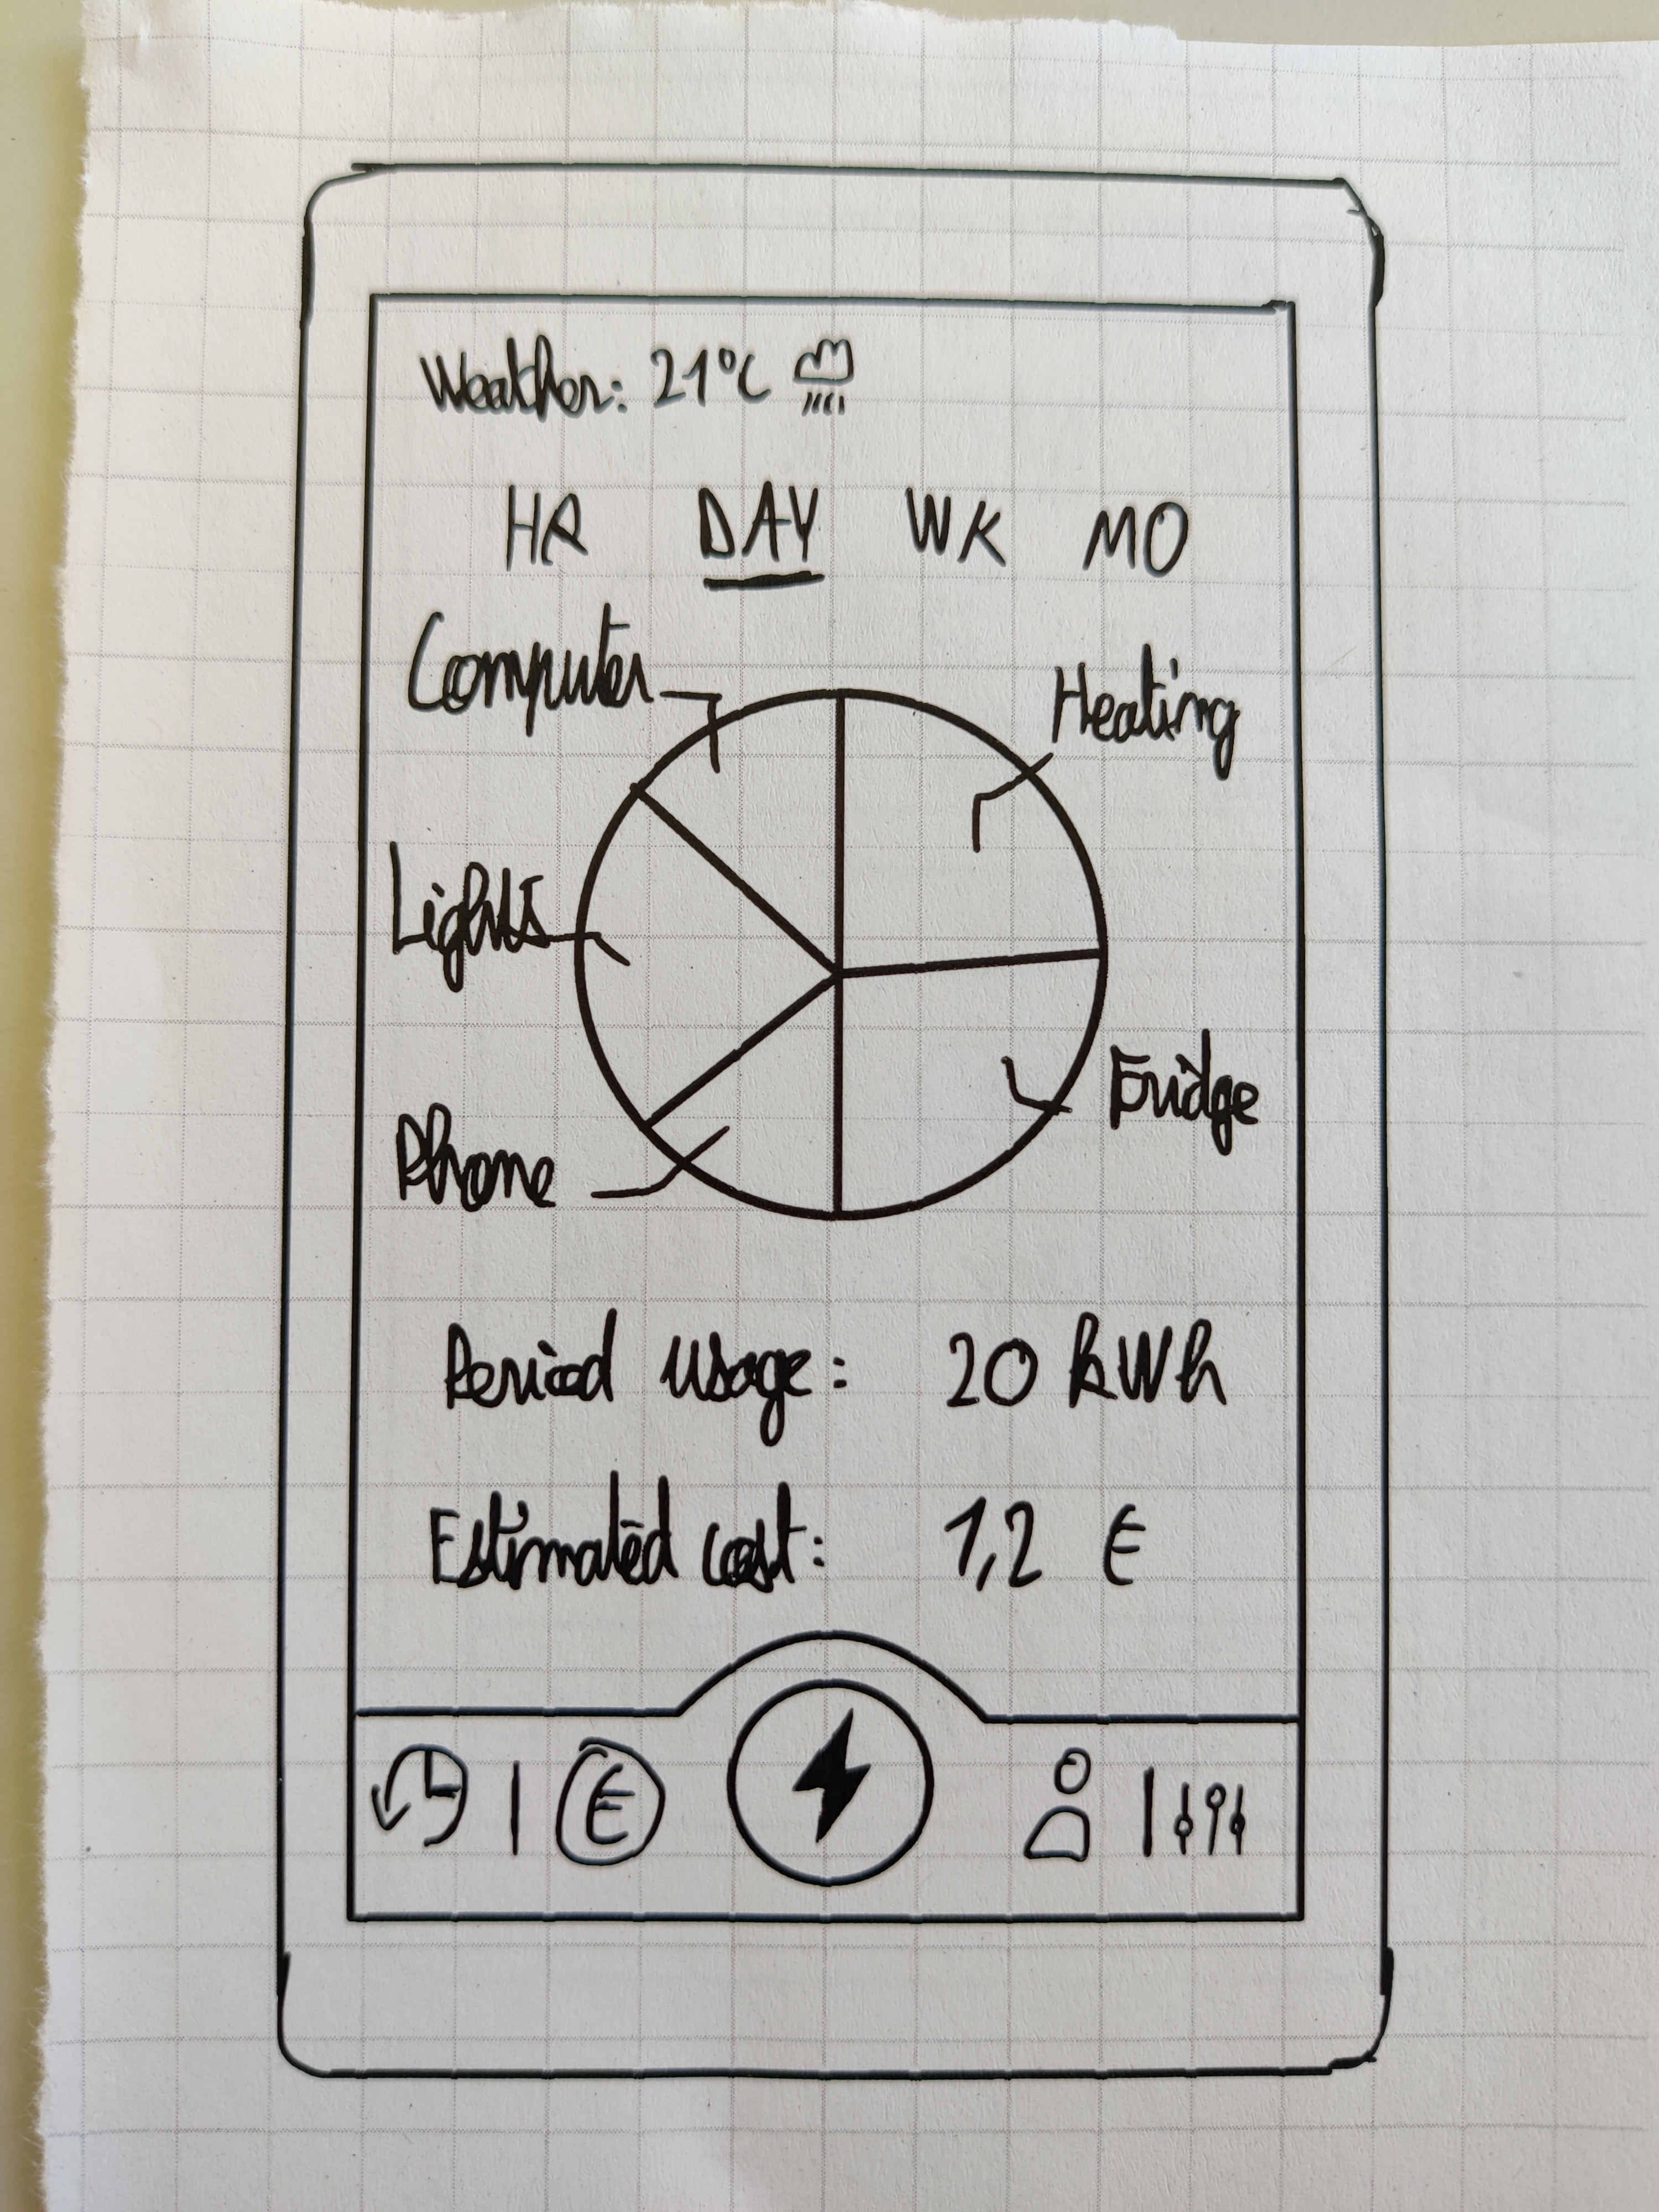 Weather: 21°C
HR DAY WK MO
Computer
Heating
Lights
Fridge
Phone
Period usage: 20 kWh
Estimated cost: 1,2 €
€